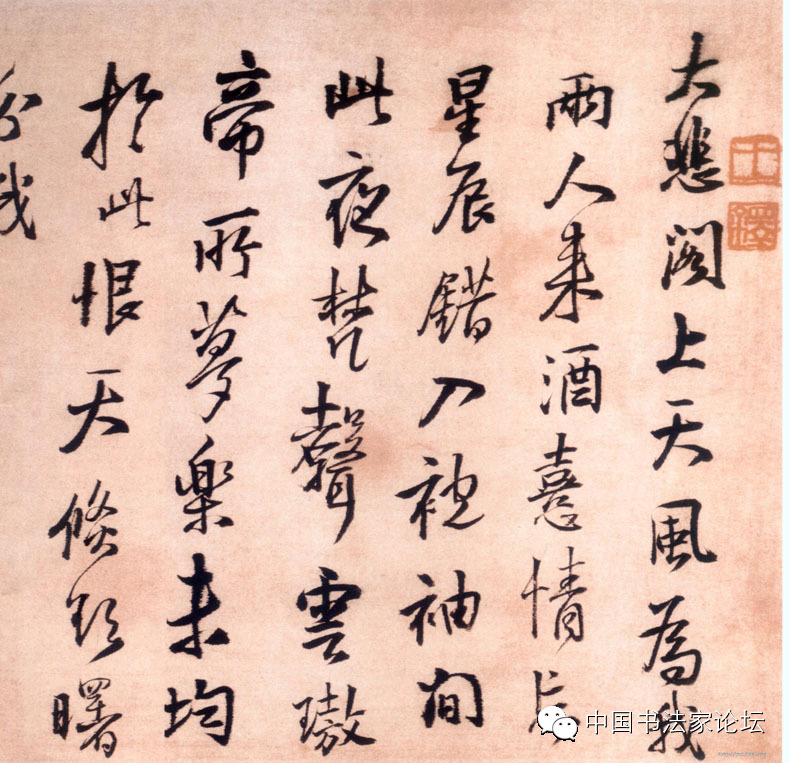 王
鐸
大悲閣上天風為我
兩人來酒憙情長
星辰錯入袍袖間
此夜梵聲雲璈
帝所夢樂未均
於此恨天倏欲曙
我
中国书法家论坛